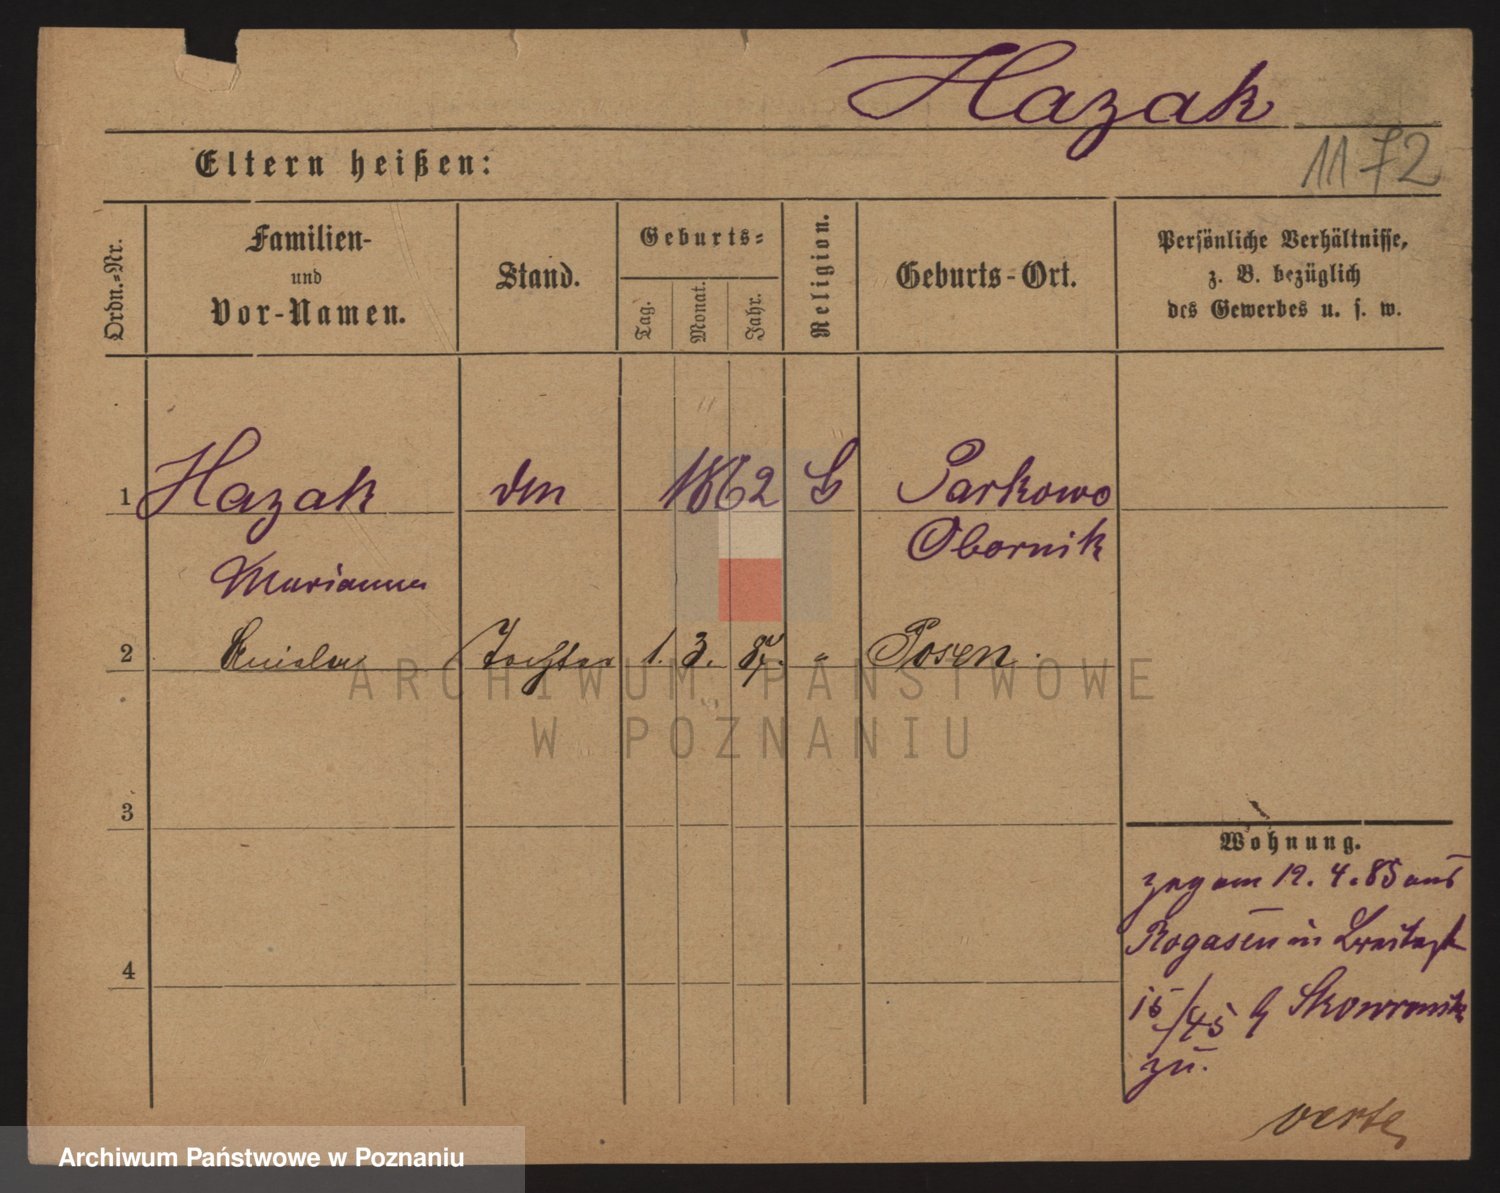 Hazak
1172
Eltern heißen:
Ordn.-Nr.
Familien-
und
Vor-Namen.
Stand.
Geburts-
Tag.
Monat.
Jahr.
Religion.
Geburts-Ort.
Persönliche Verhältnisse,
z. B. bezüglich
des Gewerbes u. s. w.
1 Hazak 1862 Parkowo
Obornik
Marianna
2 Tochter 1. 3. 87. " Posen.
3
4
ARCHIWUM PAŃSTWOWE
W POZNANIU
Wohnung.
zog am 12. 4. 85 aus
Rogasen in Breitestr
15/45 b Skowronsk
zu.
verte
Archiwum Państwowe w Poznaniu